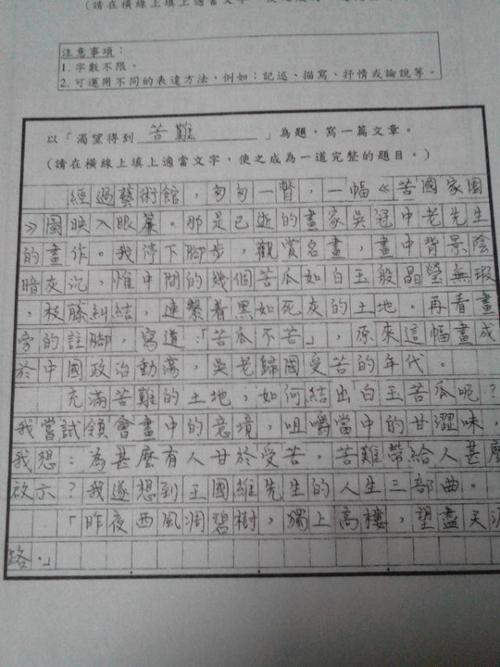 (請在橫線上填上適當文字，
注意事項：
1. 字數不限。
2. 可運用不同的表達方法，例如：記述、描寫、抒情或論說等。
以「渴望得到 苦難 」為題，寫一篇文章。
(請在橫線上填上適當文字，使之成為一道完整的題目。)
經過藝術館，匆匆一瞥，一幅《苦國家園
》圖映入眼簾。那是已逝的畫家吳冠中老先生
的畫作。我停下腳步，觀賞名畫，畫中背景陰
暗灰沉，惟中間的幾個苦瓜如白玉般晶瑩無瑕
，枝藤糾結，連繫着黑如死灰的土地。再看畫
旁的註腳，寫道：「苦瓜不苦」，原來這幅畫成
於中國政治動蕩，吳老歸國受苦的年代。
充滿苦難的土地，如何結出白玉苦瓜呢？
我嘗試領會畫中的意境，咀嚼當中的甘澀味，
我想：為甚麼有人甘於受苦，苦難帶給人甚麼
啟示？我遂想到王國維先生的人生三部曲。
「昨夜西風凋碧樹，獨上高樓，望盡天涯
路。」